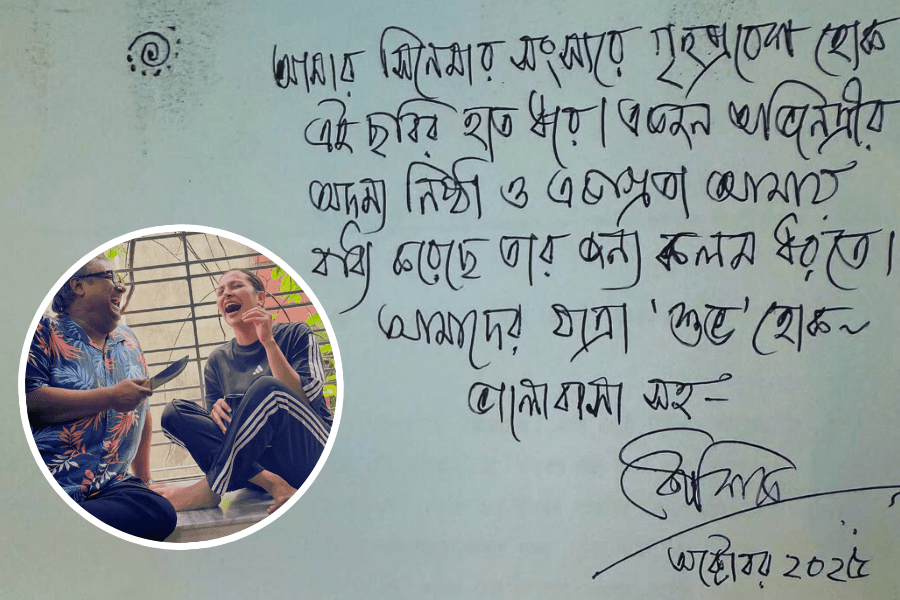 আমার সিনেমার সংসারে গৃহপ্রবেশ হোক
এই ছবির হাত ধরে। এমন অভিনেত্রীর
অদম্য নিষ্ঠা ও একাগ্রতা আমায়
বাধ্য করেছে তার জন্য কলম ধরতে।
আমাদের যাত্রা 'শুভ' হোক~
ভালোবাসা সহ -
অক্টোবর ২০২৫